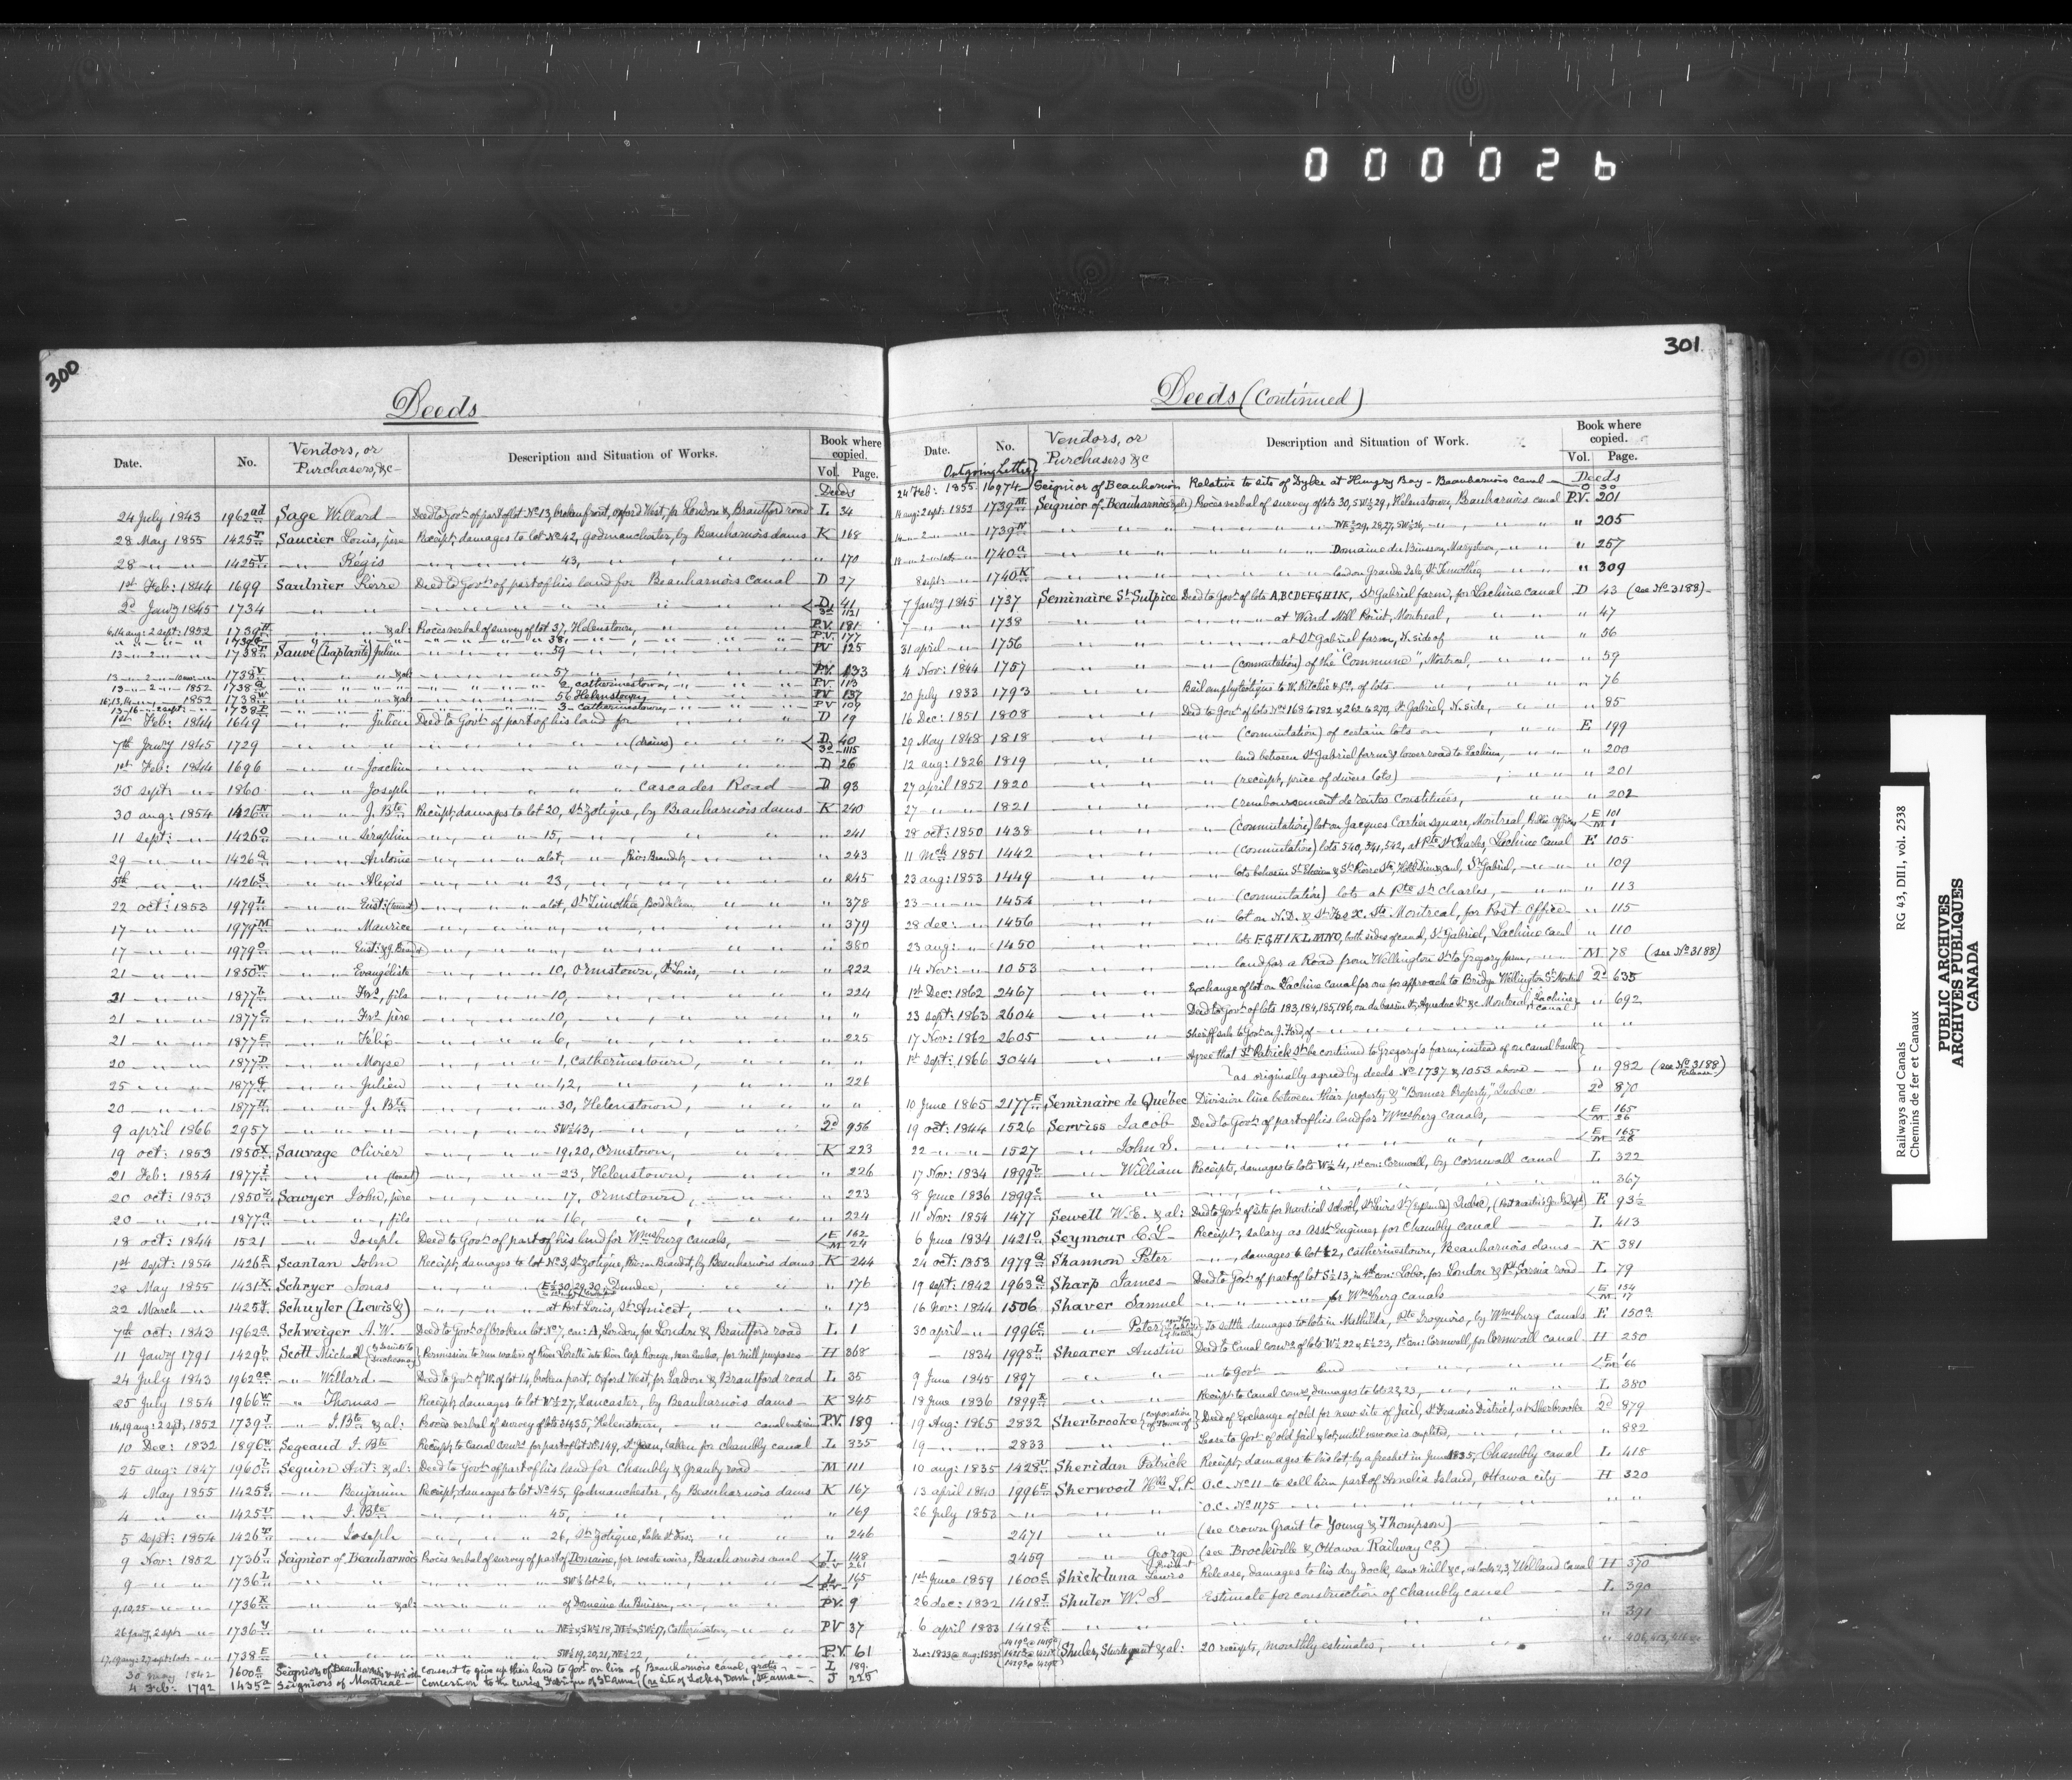 000026
300
Deeds
Date. No. Vendors, or Purchasers, &c Description and Situation of Works. Book where copied. Vol. Page.
Deeds
24 July 1843 1962 ad Sage Willard Deed to Govt. of part of lot No. 13, broken front, Oxford West, for London & Brantford road L 34
28 May 1855 1425 T Saucier Louis, père Receipt, damages to lot No. 42, Godmanchester, by Beauharnois dams K 168
28 " " 1425 V " Régis " " 43, " " " 170
1st Feb: 1844 1699 Saulnier Pierre Deed to Govt. of part of his land for Beauharnois Canal D 27
2d Jany 1845 1734 " " " " " " D 41 3d 1121
6,14 aug: 2 sept: 1852 1739 H " " &al: Procès verbal of survey of lot 37, Helenstown, " " P.V. 181
" " " 1739 G " " " " 38, " " P.V. 177
13 " 2 " " 1738 T Sauvé (Laplante) Julien " " 59 " " PV 125
13 " 2 " " 1738 V " " &al " " 57 " " P.V. 133
13 " 2 " 1852 1738 Q " " " " 2, Catherinestown, " " PV 113
16,13,14 " " 1852 1738 W " " &al: " " 56 Helenstown, " " PV 137
13 " 16 " 2 sept: " 1738 P " " " " 3 Catherinestown, " " PV 109
1st Feb: 1844 1649 " " Julien Deed to Govt. of part of his land for " " D 19
7th Jany 1845 1729 " " " " " (drains) " " D 40 3d 1115
1st Feb: 1844 1696 " " Joachim " " " " D 26
30 sept: " 1860 " " Joseph " " " Cascades Road D 93
30 aug: 1854 1426 N " " J. Bte Receipt, damages to lot 20, St. Zotique, by Beauharnois dams K 240
11 sept: " 1426 O " " Séraphin " " 15, " " " 241
29 " " 1426 Q " " Antoine " " a lot, " Riv: Beaudet, " " 243
5th " " 1426 S " " Alexis " " 23, " " " 245
22 oct: 1853 1979 L " " Eust: (tenant) " " a lot, St. Timothée, " " 378
17 " " 1979 M " " Maurice " " " " 379
17 " " 1979 O " " Eust: & J. " " " " 380
21 " " 1850 W " " Evangéliste " " 10, Ormstown, St. Louis, " " 222
21 " " 1877 b " " Frs, fils " " 10, " " " 224
21 " " 1877 c " " Frs père " " 10, " " " "
21 " " 1877 E " " Félix " " 6, " " " 225
20 " " 1877 D " " Moyse " " 1, Catherinestown, " " "
25 " " 1877 G " " Julien " " 1,2, " " " 226
20 " " 1877 H " " J. Bte " " 30, Helenstown, " " "
9 april 1866 2957 " " " " SW½ 43, " " 2d 956
19 oct: 1853 1850 X Sauvage Olivier " " 19,20, Ormstown, " K 223
21 Feb: 1854 1877 I " " (tenant) " " 23, Helenstown, " " 226
20 oct: 1853 1850 Sawyer John, père " " 17, Ormstown, " " 223
20 " " 1877 a " " , fils " " 16, " " " 224
18 oct: 1844 1521 " Joseph Deed to Govt. of part of his land for Wmsburg canals, E 162 M 24
1st sept: 1854 1426 R Scanlan John Receipt, damages to lot No. 3, St. Zotique, Riviere Beaudet, by Beauharnois dams K 244
28 May 1855 1431 K Schryer Jonas " " E½ 30, 29, 30, Dundee, " " 176
22 March " 1425 Y Schuyler (Lewis &) " " at Port Louis, St. Anicet, " " 173
7th oct: 1843 1962 a Schweiger A. W. Deed to Govt. of broken lot No. 7, con: A, London, for London & Brantford road L 1
11 Jany 1791 1429 b Scott Michael Permission to run water of River Lorette into River Cap Rouge, near Quebec, for mill purposes H 368
24 July 1843 1962 ae " Willard Deed to Govt. of W. of lot 14, broken front, Oxford West, for London & Brantford road L 35
25 July 1854 1966 W " Thomas Receipt, damages to lot W½ 27, Lancaster, by Beauharnois dams K 345
14,19 aug: 2 sept. 1852 1739 J " J. Bte &al: Procès verbal of survey of lots 34, 35, Helenstown, " " canal P.V. 189
10 Dec: 1832 1896 Segeaud J. Bte Receipt, to Canal Comrs. for part of lot No. 149, St. Jean, taken for Chambly canal L 335
25 aug: 1847 1960 b Seguin Ant: &al: Deed to Govt. of part of his land for Chambly & Granby road M 111
4 May 1855 1425 S " Benjamin Receipt, damages to lot No. 45, Godmanchester, by Beauharnois dams K 167
4 " " 1425 U " J. Bte " " 45, " " " 169
5 Sept: 1854 1426 T " Joseph " " 26, St. Zotique, Lake St. Frs: " " 246
9 Nov: 1852 1736 J Seignior of Beauharnois Procès verbal of survey of part of Domaine, for waste weirs, Beauharnois canal L 148 P.V. 261
9 " " 1736 L " " " " SW½ lot 26, " " L 165 P.V. 1
9,10,25 " " 1736 X " " &al: " " of Domaine du Buisson, " " P.V. 9
26 Jany, 2 sept: " 1736 Y " " " " NE½ & SW½ 18, NE½ & SW½ 17, Catherinestown, " P.V 37
17,19 aug: 27 sept: oct: " 1738 E " " " " SW½ 19,20,21, NE½ 22, " P.V. 61
30 May 1842 1600 E Seigniors of Beauharnois consent to give up their land to Govt. on line of Beauharnois canal, gratis L 189
4 Feb: 1792 1435 a Seigniors of Montreal Concession to the curés, Fabrique of St. Anne, (re site of Lock & Dam, Ste anne J 225
301
Deeds (Continued)
Date. No. Vendors, or Purchasers &c Description and Situation of Work. Book where copied. Vol. Page.
Outgoing Letter
24 Feb: 1855 16974 Seignior of Beauharnois Relative to site of Dyke at Hungry Bay - Beauharnois canal Deeds O 30
14 aug: 2 sept: 1852 1739 M Seignior of Beauharnois (&al:) Procès verbal of survey of lots 30, SW½ 29, Helenstown, Beauharnois canal P.V. 201
14 " 2 " " 1739 N " " " " NE½ 29, 28, 27, SW½ 26, " " " 205
1740 a " " " " Domaine du Buisson, Marystown, " " " 257
8 sept: " 1740 K " " " " land on Grande Isle, St. Timothée, " " " 309
7 Jany 1845 1737 Seminaire St. Sulpice Deed to Govt. of lots ABCDEFGHIK, St. Gabriel farm, for Lachine canal D 43 (see No. 3188)
7 " " 1738 " " " " at Wind Mill Point, Montreal, " " " 47
31 april " 1756 " " " " at St. Gabriel farm, N. side of " " " 56
4 Nov: 1844 1757 " " " (commutation) of the "Commune", Montreal, " " " 59
20 July 1833 1793 " " Bail amphytéotique to W. Ritchie & Co. of lots " " " 76
16 Dec: 1851 1808 " " Deed to Govt. of lots Nos. 168 to 182 & 262 to 270, St. Gabriel, N. side, " " " 85
29 May 1848 1818 " " " (commutation) of certain lots on " " E 199
12 aug: 1826 1819 " " " land between St. Gabriel farm & lower road to Lachine, " " " 200
27 april 1852 1820 " " " (receipt, price of divers lots) " " " 201
27 " " 1821 " " " (remboursement de rentes Constituées, " " " 202
28 oct: 1850 1438 " " " (commutation) lot on Jacques Cartier square, Montreal, Public Offices E 101 M 1
11 Mch 1851 1442 " " " (commutation) lots 540, 541, 542, at Pte St. Charles, Lachine Canal E 105
23 aug: 1853 1449 " " " lots " " " 109
23 " " 1454 " " " (commutation) lots at Pte St. Charles, " " " 113
28 dec: " 1456 " " " lot on N.D. & St. Frs X. Sts Montreal, for Post Office " 115
23 aug: " 1450 " " " lots FGHIKLMNO, both sides of canal, St. Gabriel, Lachine Canal " 110
14 Nov: " 1053 " " " land for a Road from Wellington St. to Gregory farm, " " M 78 (see No. 3188)
1st Dec: 1862 2467 " " Exchange of lot on Lachine canal for one for approach to Bridge Wellington St. Montreal 2d 635
23 sept: 1863 2604 " " Deed to Govt. of lots 183, 184, 185, 186, on du bassin St, Aqueduc St. &c Montreal, Lachine canal " 692
17 Nov: 1862 2605 " " Sheriff sale to Govt. on J. Ford, of " " " "
1st sept: 1866 3044 " " Agree that St. Patrick St. be continued to Gregory's farm, instead of on canal bank
as originally agreed by deeds No. 1737 & 1053 above " 982 (see No. 3188 Release)
10 June 1865 2177 E Seminaire de Québec Division line between their property & "Bonner Property," Quebec 2d 870
19 oct: 1844 1526 Serviss Jacob Deed to Govt. of part of his land for Wmsburg canals, E 165 M 26
22 " " 1527 " John S. " " " " E 165 M 28
17 Nov: 1834 1899 b " William Receipts, damages to lots W½ 4, 1st con: Cornwall, by Cornwall canal L 322
8 June 1836 1899 c " " " " " " " 367
11 Nov: 1854 1477 Sewell W. E. &al: Deed to Govt. of site for Nautical School, St. Louis St. Quebec, E 93½
6 June 1834 1421 O Seymour C. L. Receipt, salary as Asst. Engineer, for Chambly canal L 413
24 oct: 1853 1979 Q Shannon Peter " damages to lot 2, Catherinestown, Beauharnois dams K 381
19 sept: 1842 1963 Q Sharp James Deed to Govt. of part of lot S½ 13, in 4th con: Lobo, for London & Pt. Sarnia road L 79
16 Nov: 1844 1506 Shaver Samuel " " " for Wmsburg canals E 134 M 17
30 april " 1996 c " Peter to settle damages to lots in Mathilda, Pte Iroquois, by Wmsburg Canals E 150 a
" 1834 1998 L Shearer Austin Deed to Canal Comrs. of lots W½ 22 & E½ 23, 1st con: Cornwall, for Cornwall canal H 250
9 June 1845 1897 " " " to Govt. " land " " E 1 M 66
18 June 1836 1899 R " " Receipt to Canal Comrs., damages to lots 22, 23, " " L 380
19 Aug: 1865 2832 Sherbrooke (corporation of Town of) Deed of Exchange of old for new site of Jail, St. Francis District, at Sherbrooke 2d 879
19 " " 2833 " " Lease to Govt. of old Jail & lot, until new one is completed, " " " 882
10 aug: 1835 1428 U Sheridan Patrick Receipt, damages to his lot, by a freshet in June 1835, Chambly canal L 418
13 april 1840 1996 E Sherwood L. P. O.C. No. 11 to sell him part of Amelia Island, Ottawa city H 320
26 July 1853 " " " O.C. No. 1175 " " "
2471 " " (see crown Grant to Young & Thompson)
2459 " George (see Brockville & Ottawa Railway Co.)
1st June 1859 1600 C Shickluna Lewis Release, damages to his dry dock, saw mill &c, at locks 2, 3, Welland Canal H 370
26 dec: 1832 1418 J Shuter W. S. Estimate for construction of Chambly canal L 390
6 april 1833 1418 K " " " " " 391
Dec: 1833 @ aug: 1835 Shuler, Sturtevant &al: 20 receipts, monthly estimates, " "
Railways and Canals RG 43, DIII, vol. 2538
Chemins de fer et Canaux
PUBLIC ARCHIVES
ARCHIVES PUBLIQUES
CANADA